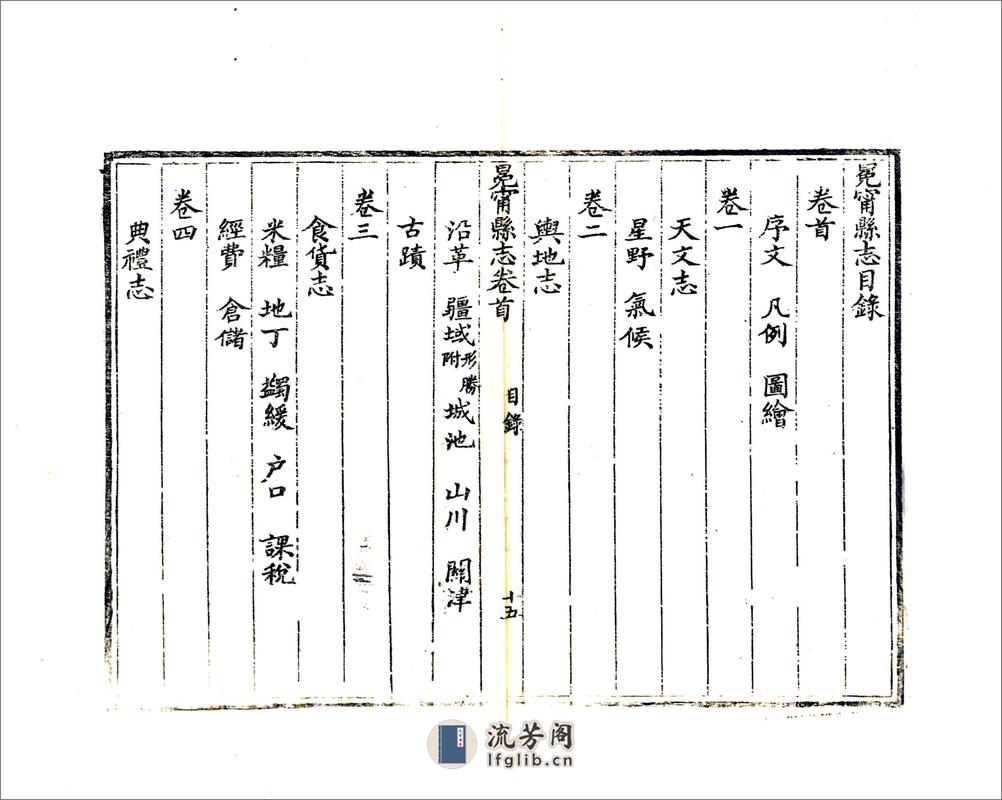 冕甯縣志目錄
卷首
序文　凡例　圖繪
卷一
天文志
星野　氣候
卷二
輿地志
冕甯縣志卷首　目錄　十五
沿革　疆域形勝附　城池　山川　關津
古蹟
卷三
食貨志
米糧　地丁　蠲緩　户口　課稅
經費　倉儲
卷四
典禮志
流芳阁
lfglib.cn